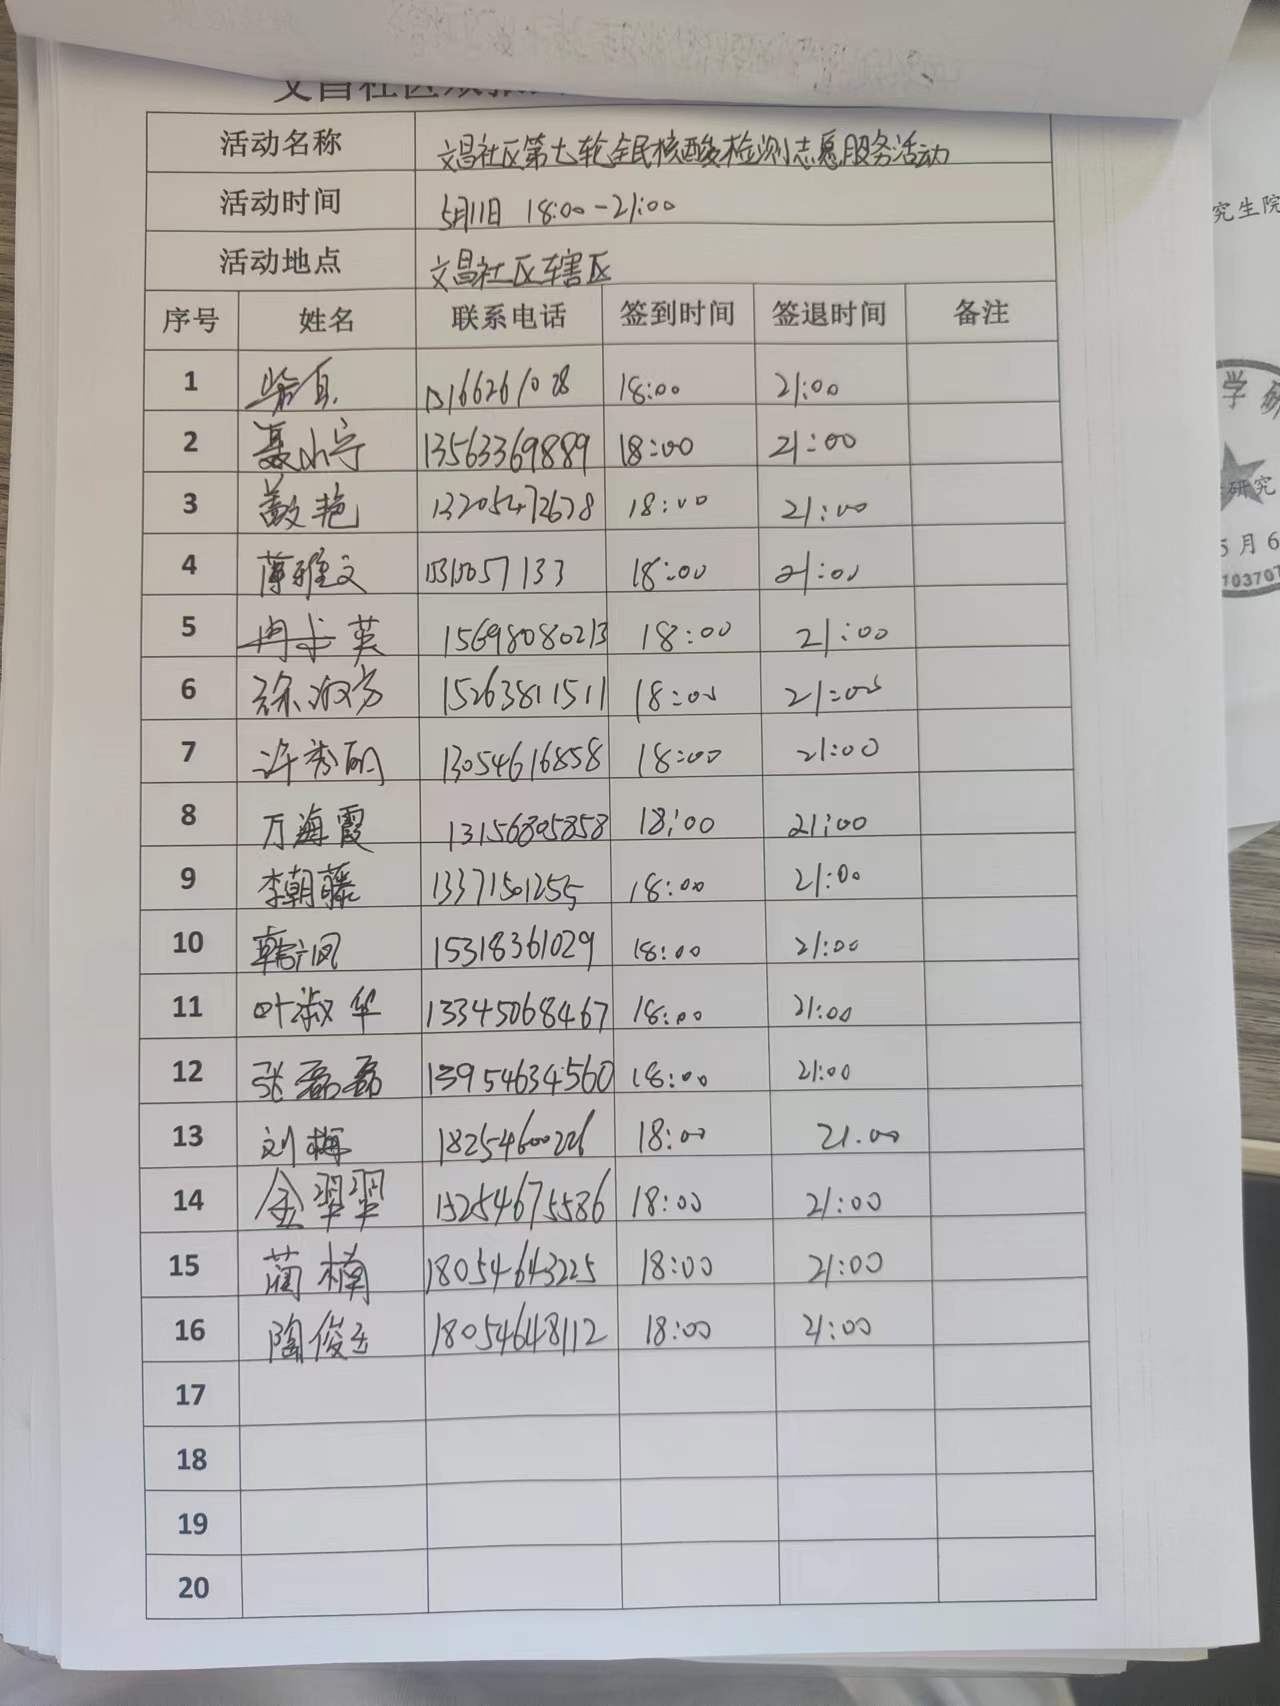 活动名称 文昌社区第七轮全民核酸检测志愿服务活动
活动时间 5月11日 18:00-21:00
活动地点 文昌社区辖区
序号 姓名 联系电话 签到时间 签退时间 备注
1 18:00 21:00
2 聂小宁 13563369889 18:00 21:00
3 艳 13205472678 18:00 21:00
4 薄雅文 18:00 21:00
5 英 15698080213 18:00 21:00
6 徐淑芳 15263811511 18:00 21:00
7 许秀丽 13054616858 18:00 21:00
8 万海霞 13156805858 18:00 21:00
9 李朝藤 13371501255 18:00 21:00
10 韩凤 15318361029 18:00 21:00
11 叶淑华 13345068467 18:00 21:00
12 张磊磊 13954634560 18:00 21:00
13 刘梅 18254600226 18:00 21.00
14 金翠翠 15254675586 18:00 21:00
15 蔺楠 18054643225 18:00 21:00
16 陶俊玉 18054648112 18:00 21:00
17
18
19
20
究生院
学研
研究
5月6